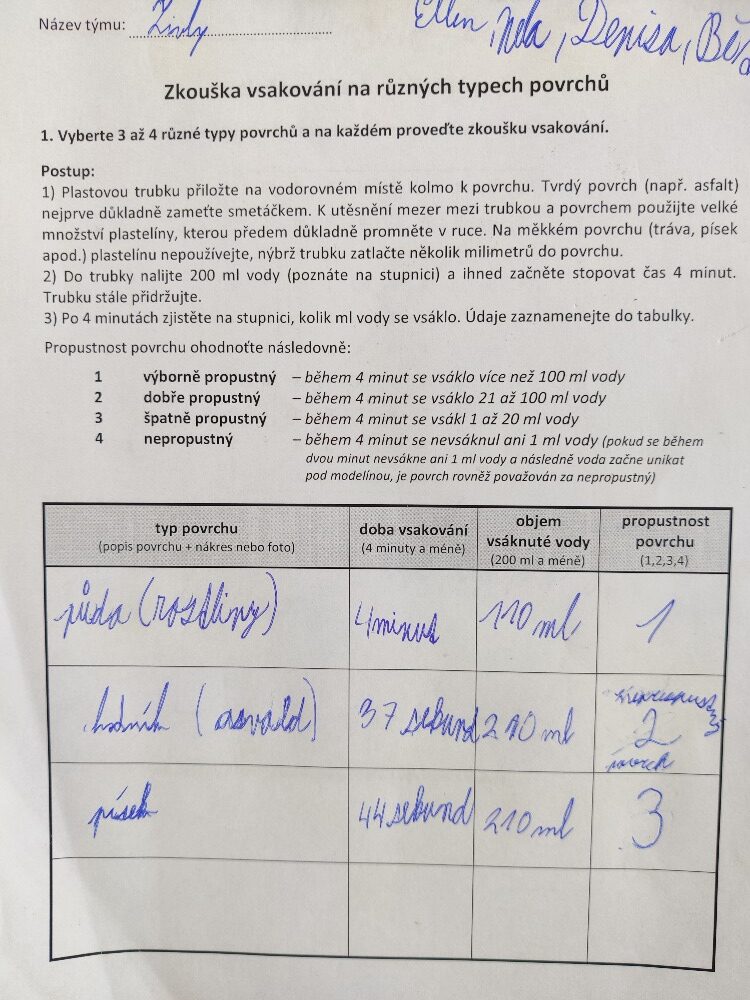 Název týmu: Židy
Ellen, Nela, Denisa, Bě
Zkouška vsakování na různých typech povrchů
1. Vyberte 3 až 4 různé typy povrchů a na každém proveďte zkoušku vsakování.
Postup:
1) Plastovou trubku přiložte na vodorovném místě kolmo k povrchu. Tvrdý povrch (např. asfalt)
nejprve důkladně zameťte smetáčkem. K utěsnění mezer mezi trubkou a povrchem použijte velké
množství plastelíny, kterou předem důkladně promněte v ruce. Na měkkém povrchu (tráva, písek
apod.) plastelínu nepoužívejte, nýbrž trubku zatlačte několik milimetrů do povrchu.
2) Do trubky nalijte 200 ml vody (poznáte na stupnici) a ihned začněte stopovat čas 4 minut.
Trubku stále přidržujte.
3) Po 4 minutách zjistěte na stupnici, kolik ml vody se vsáklo. Údaje zaznamenejte do tabulky.
Propustnost povrchu ohodnoťte následovně:
1 výborně propustný – během 4 minut se vsáklo více než 100 ml vody
2 dobře propustný – během 4 minut se vsáklo 21 až 100 ml vody
3 špatně propustný – během 4 minut se vsákl 1 až 20 ml vody
4 nepropustný – během 4 minut se nevsáknul ani 1 ml vody (pokud se během
dvou minut nevsákne ani 1 ml vody a následně voda začne unikat
pod modelínou, je povrch rovněž považován za nepropustný)
typ povrchu
(popis povrchu + nákres nebo foto)
doba vsakování
(4 minuty a méně)
objem
vsáknuté vody
(200 ml a méně)
propustnost
povrchu
(1,2,3,4)
půda (rostliny) 4 minut 110 ml 1
chodník (asvald) 37 sekund 210 ml 2
povrch
písek 44 sekund 210 ml 3